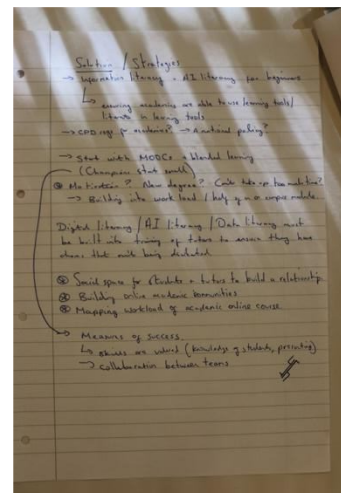 Solution / Strategies
→ Information literacy + AI literacy for beginners
↳ ensuring academics are able to use learning tools/
literate in learning tools
→ CPD reqs for academics? → A national policy?
→ Start with MOOCs + blended learning
(Champions start small)
Motivation? New degree? Could take up too much time?
→ Building into work load / help of on campus module.
Digital literacy / AI literacy / Data literacy must
be built into training of tutors to ensure they have
without being
Social space for students + tutors to build a relationship
Building online academic communities
Mapping workload of academic online course
→ Measures of success
↳ skills are valued (knowledge of students, presenting)
→ collaboration between teams